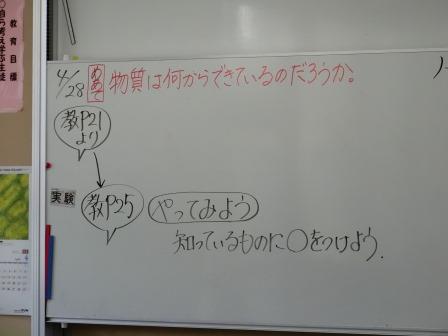 教育目標
4/28 めあて 物質は何からできているのだろうか。
教P21
より
実験
教P25 やってみよう
知っているものに○をつけよう.